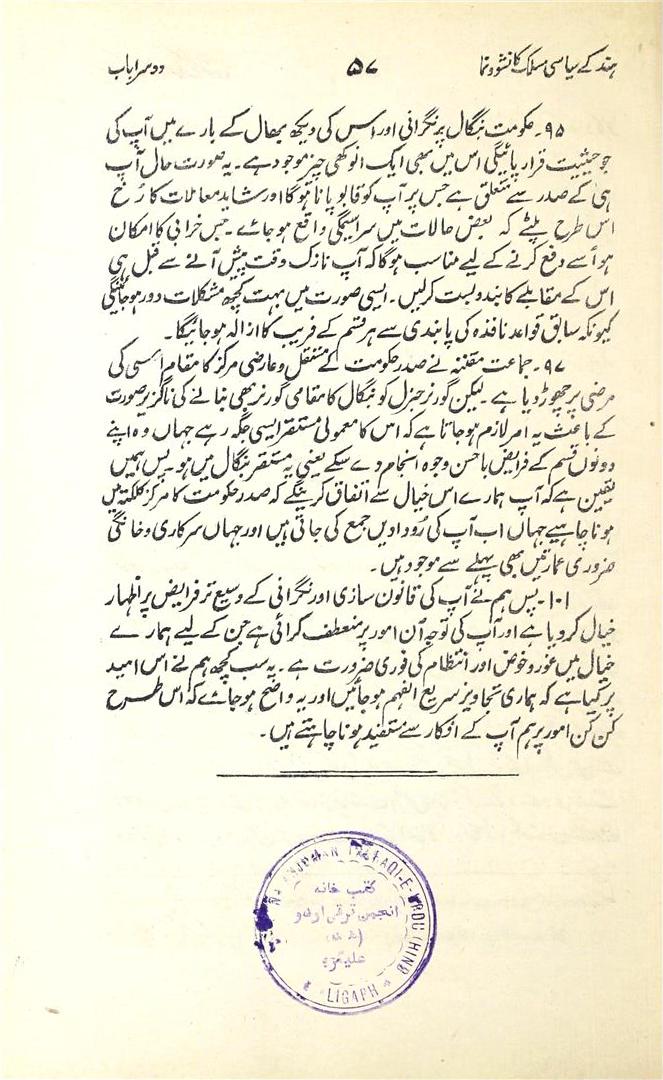 ہند کے سیاسی مسلک کا نشو و نما ۵۷ دوسرا باب
۹۵۔ حکومت بنگال پر نگرانی اور اس کی دیکھ بھال کے بارے میں آپ کی
جو حیثیت قرار پائیگی اس میں بھی ایک انوکھی چیز موجود ہے۔ یہ صورت حال آپ
ہی کے صدر سے متعلق ہے جس پر آپ کو قابو پانا ہوگا اور شاید معاملات کا رُخ
اس طرح پلٹے کہ بعض حالات میں سراسیمگی واقع ہو جائے۔ جس خرابی کا امکان
ہو اُسے دفع کرنے کے لیے مناسب ہوگا کہ آپ نازک وقت پیش آنے سے قبل ہی
اس کے مقابلے کا بندوبست کرلیں۔ ایسی صورت میں بہت کچھ مشکلات دور ہو جائینگی
کیونکہ سابق قواعد نافذہ کی پابندی سے ہر قسم کے فریب کا ازالہ ہو جائیگا۔
۹۷۔ جماعت مقننہ نے صدر حکومت کے مستقل و عارضی مرکز کا مقام اسی کی
مرضی پر چھوڑ دیا ہے۔ لیکن گورنر جنرل کو بنگال کا مقامی گورنر بھی بنانے کی ناگزیر صورت
کے باعث یہ امر لازم ہو جاتا ہے کہ اس کا معمولی مستقر ایسی جگہ رہے جہاں وہ اپنے
دونوں قسم کے فرایض باحسن وجوہ انجام دے سکے یعنی یہ مستقر بنگال میں ہو۔ پس ہمیں
یقین ہے کہ آپ ہمارے اس خیال سے اتفاق کرینگے کہ صدر حکومت کا مرکز کلکتہ میں
ہونا چاہیے جہاں اب آپ کی رُودادیں جمع کی جاتی ہیں اور جہاں سرکاری و خانگی
ضروری عمارتیں بھی پہلے سے موجود ہیں۔
۱۰۱۔ پس ہم نے آپ کی قانون سازی اور نگرانی کے وسیع تر فرایض پر اظہار
خیال کر دیا ہے اور آپ کی توجہ اُن امور پر منعطف کرائی ہے جن کے لیے ہمارے
خیال میں غور و خوض اور انتظام کی فوری ضرورت ہے۔ یہ سب کچھ ہم نے اس امید
پر کیا ہے کہ ہماری تجاویز سریع الفہم ہو جائیں اور یہ واضح ہو جائے کہ اس طرح
کن کن امور پر ہم آپ کے افکار سے مستفید ہونا چاہتے ہیں۔
ANJUMAN TARAQQI-E-URDU (HIND)
کتب خانہ
انجمن ترقی اردو
(ہند)
علیگڑھ
LIGARH